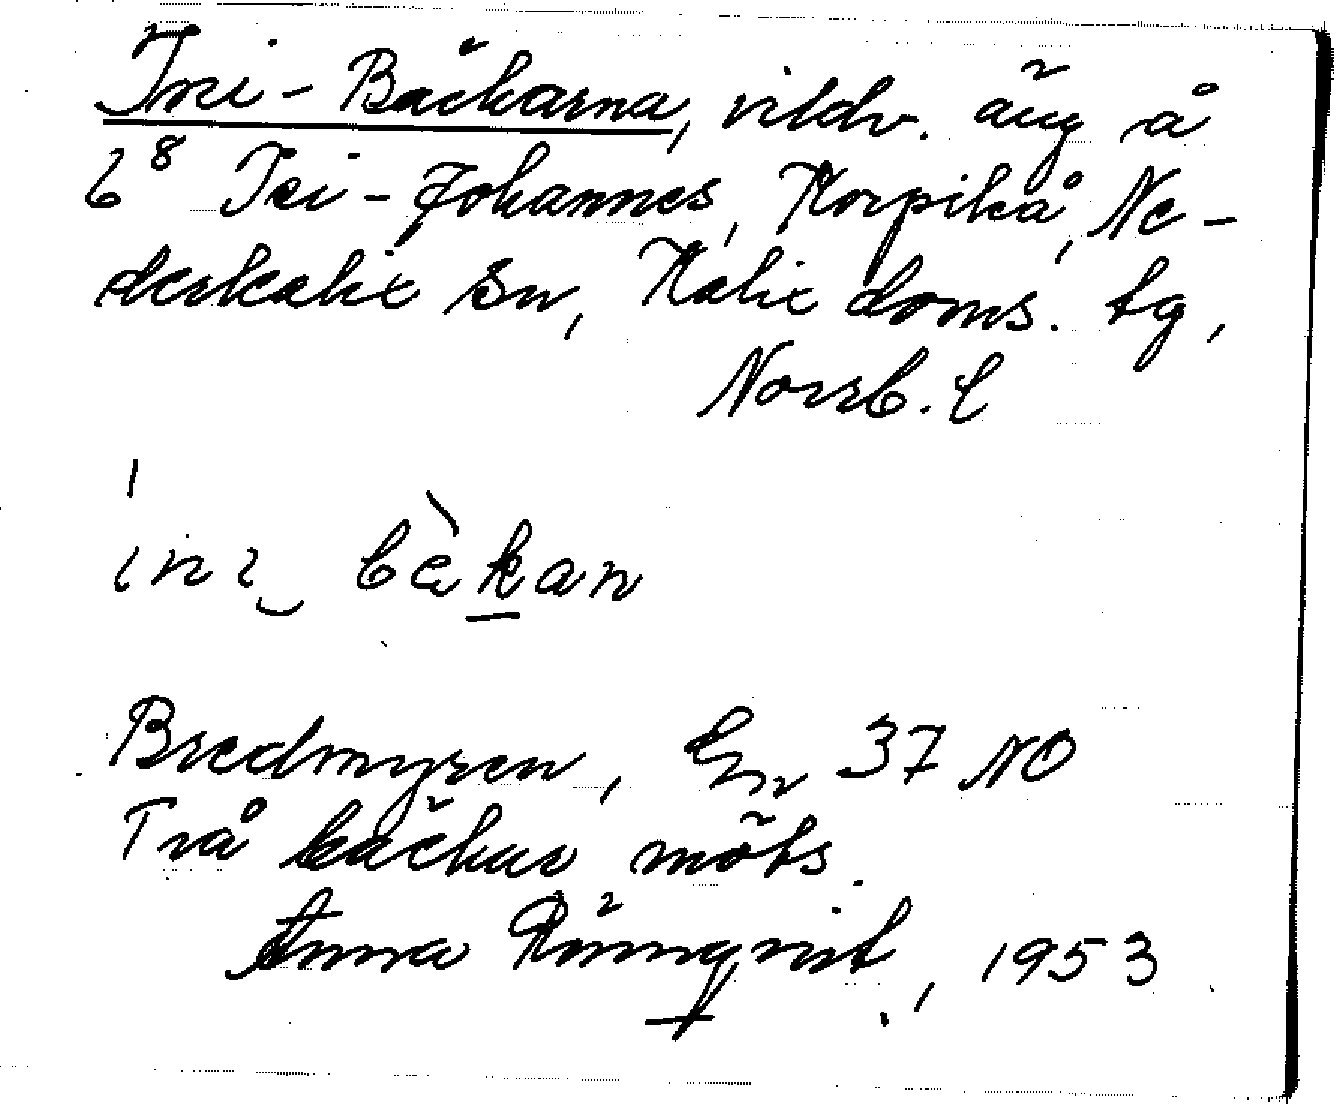 Ini-Bäckarna, vildv. äng å
6⁸ Ini-Johannes, Korpikå, Ne-
derkalix sn, Kalix doms. tg,
Norrb. l
ini bäkan
Bredmyren, En 37 NO
Två bäckar möts.
Anna Rönnqvist, 1953